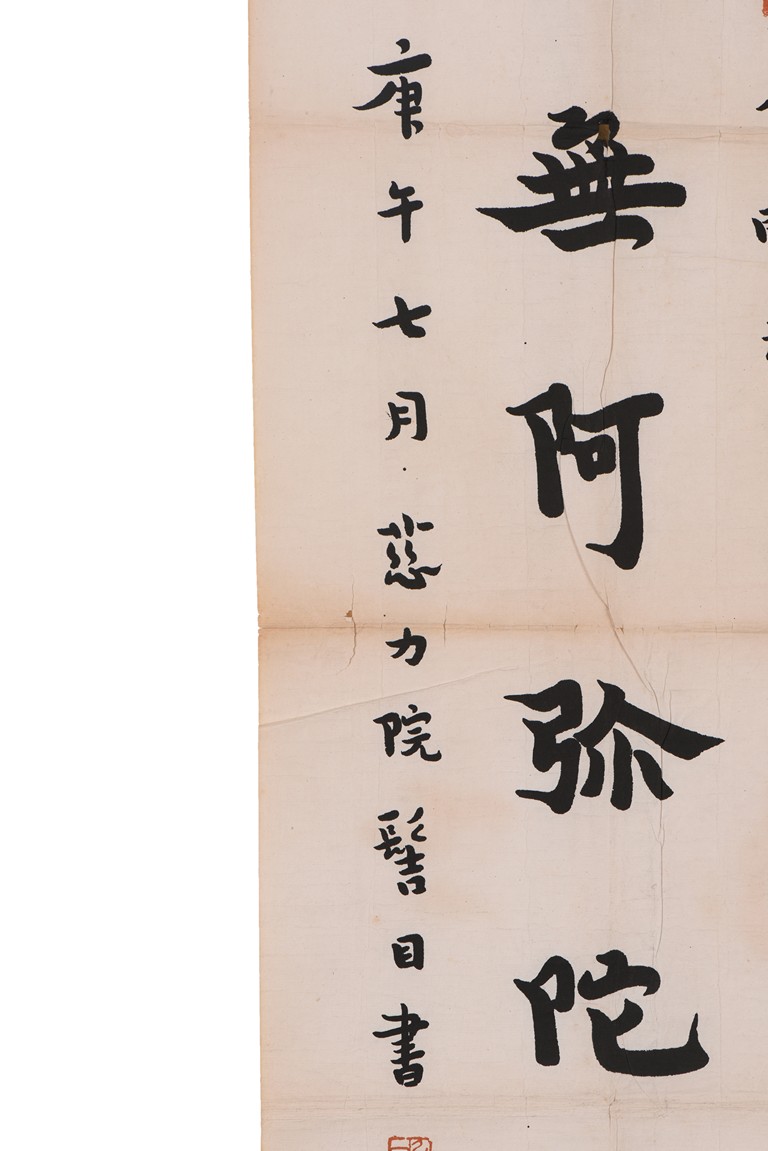 無阿弥陀
庚午七月慈力院髻目書